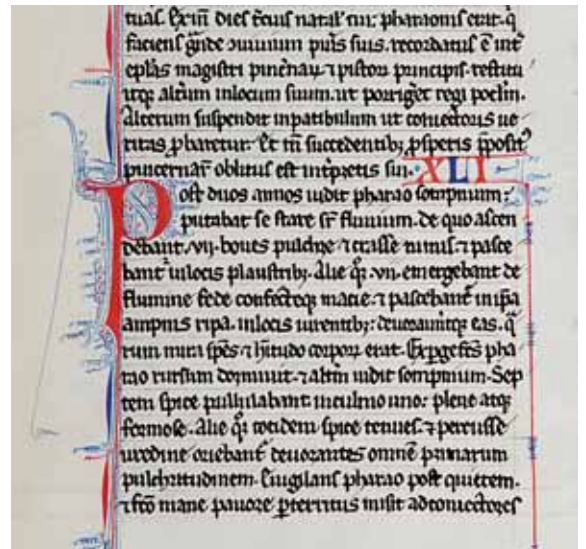 tuas. Exin̄ dies t̄cius natal' cui: pharaonis erat. q̄
faciens g̃nde ↄuiuium pu̾is suis. recordatus ē int̾
eplãs magistri pincnaꝝ ⁊ pistoꝝ principis. restitu
itqꝫ alt̾um inlocum suum. ut porriget̾ regi poclm̄.
Alterum suspendit inpatibulum ut coniectoris ue
ritas ꝓbaretur. Et tn̄ succedentibꝫ ꝓsperis
pincernaꝝ oblitus est int̾pretis sui. XLI
Post duos annos uidit pharao sompnium:
putabat se stare sr̄ fluuium. de quo ascen
debant. vij. boues pulchre ⁊ crasse nimis. ⁊ pasce
bant̾ inlocis Alie qꝫ. vij. emergebant de
flumine fede confecteqꝫ macie. ⁊ pascebant̾ inip̃a
ampnis ripa. inlocis uirentibꝫ: deuorauertqꝫ eas. q̃
rum mira sp̄es ⁊ h̾itudo corpoꝝ erat. Exp̱gefc̄s pha
rao rursum dormiuit. ⁊ alt̾m uidit sompnium. Sep
tem spice pullulabant inculmo uno: plene atqꝫ
formose. Alie qꝫ totidem spice tenues. ⁊ percusse
uredine oriebant̾ deuorantes omnē priinarum
pulchritudinem. Euigilans pharao post quietem.
⁊ fc̄o mane pauore ꝑterritus misit ad coniectores